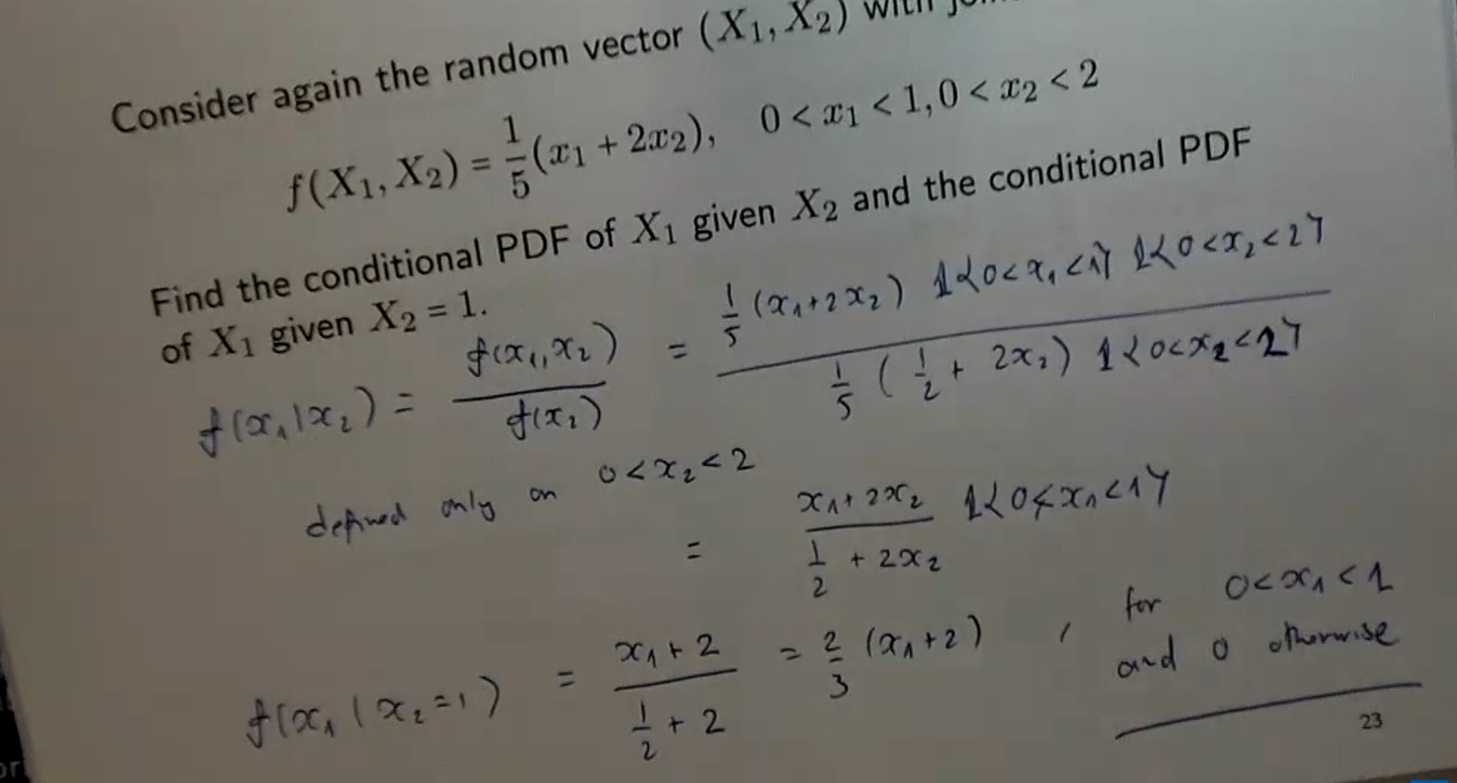 Consider again the random vector (X₁, X₂) with
f(X₁, X₂) = 1/5 (x₁ + 2x₂), 0 < x₁ < 1, 0 < x₂ < 2
Find the conditional PDF of X₁ given X₂ and the conditional PDF
of X₁ given X₂ = 1.
f(x₁|x₂) = f(x₁,x₂) / f(x₂) = 1/5 (x₁+2x₂) 1{0<x₁<1} 1{0<x₂<2} / 1/5 (1/2 + 2x₂) 1{0<x₂<2}
defined only on 0<x₂<2
= x₁+2x₂ / 1/2 + 2x₂ 1{0<x₁<1}
f(x₁|x₂=1) = x₁+2 / 1/2 + 2 = 2/3 (x₁+2), for 0<x₁<1
and 0 otherwise
23